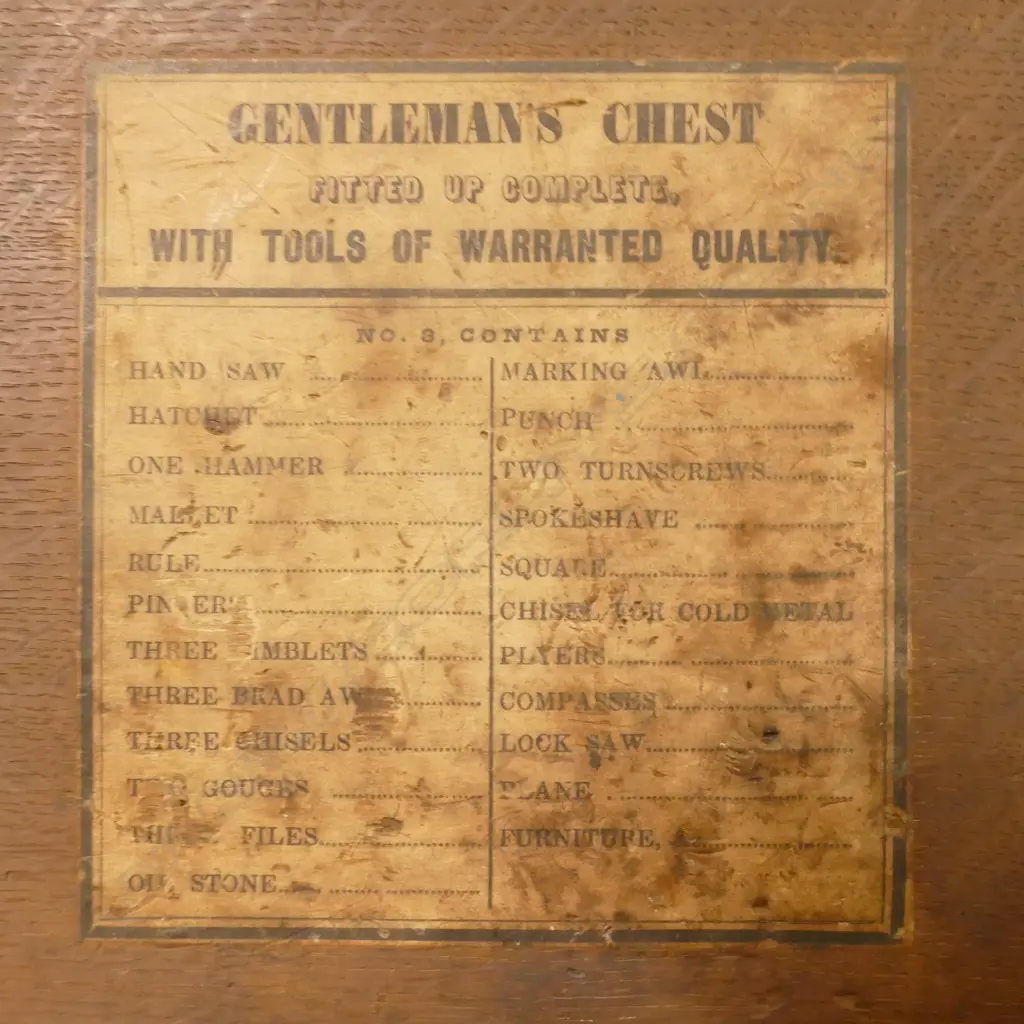 GENTLEMAN'S CHEST
FITTED UP COMPLETE,
WITH TOOLS OF WARRANTED QUALITY.
NO. 3, CONTAINS
HAND SAW
HATCHET
ONE HAMMER
MALLET
RULE
PINCERS
THREE GIMBLETS
THREE BRAD AWLS
THREE CHISELS
TWO GOUGES
THREE FILES
OIL STONE
MARKING AWL
PUNCH
TWO TURNSCREWS
SPOKESHAVE
SQUARE
CHISEL FOR COLD METAL
PLYERS
COMPASSES
LOCK SAW
PLANE
FURNITURE,